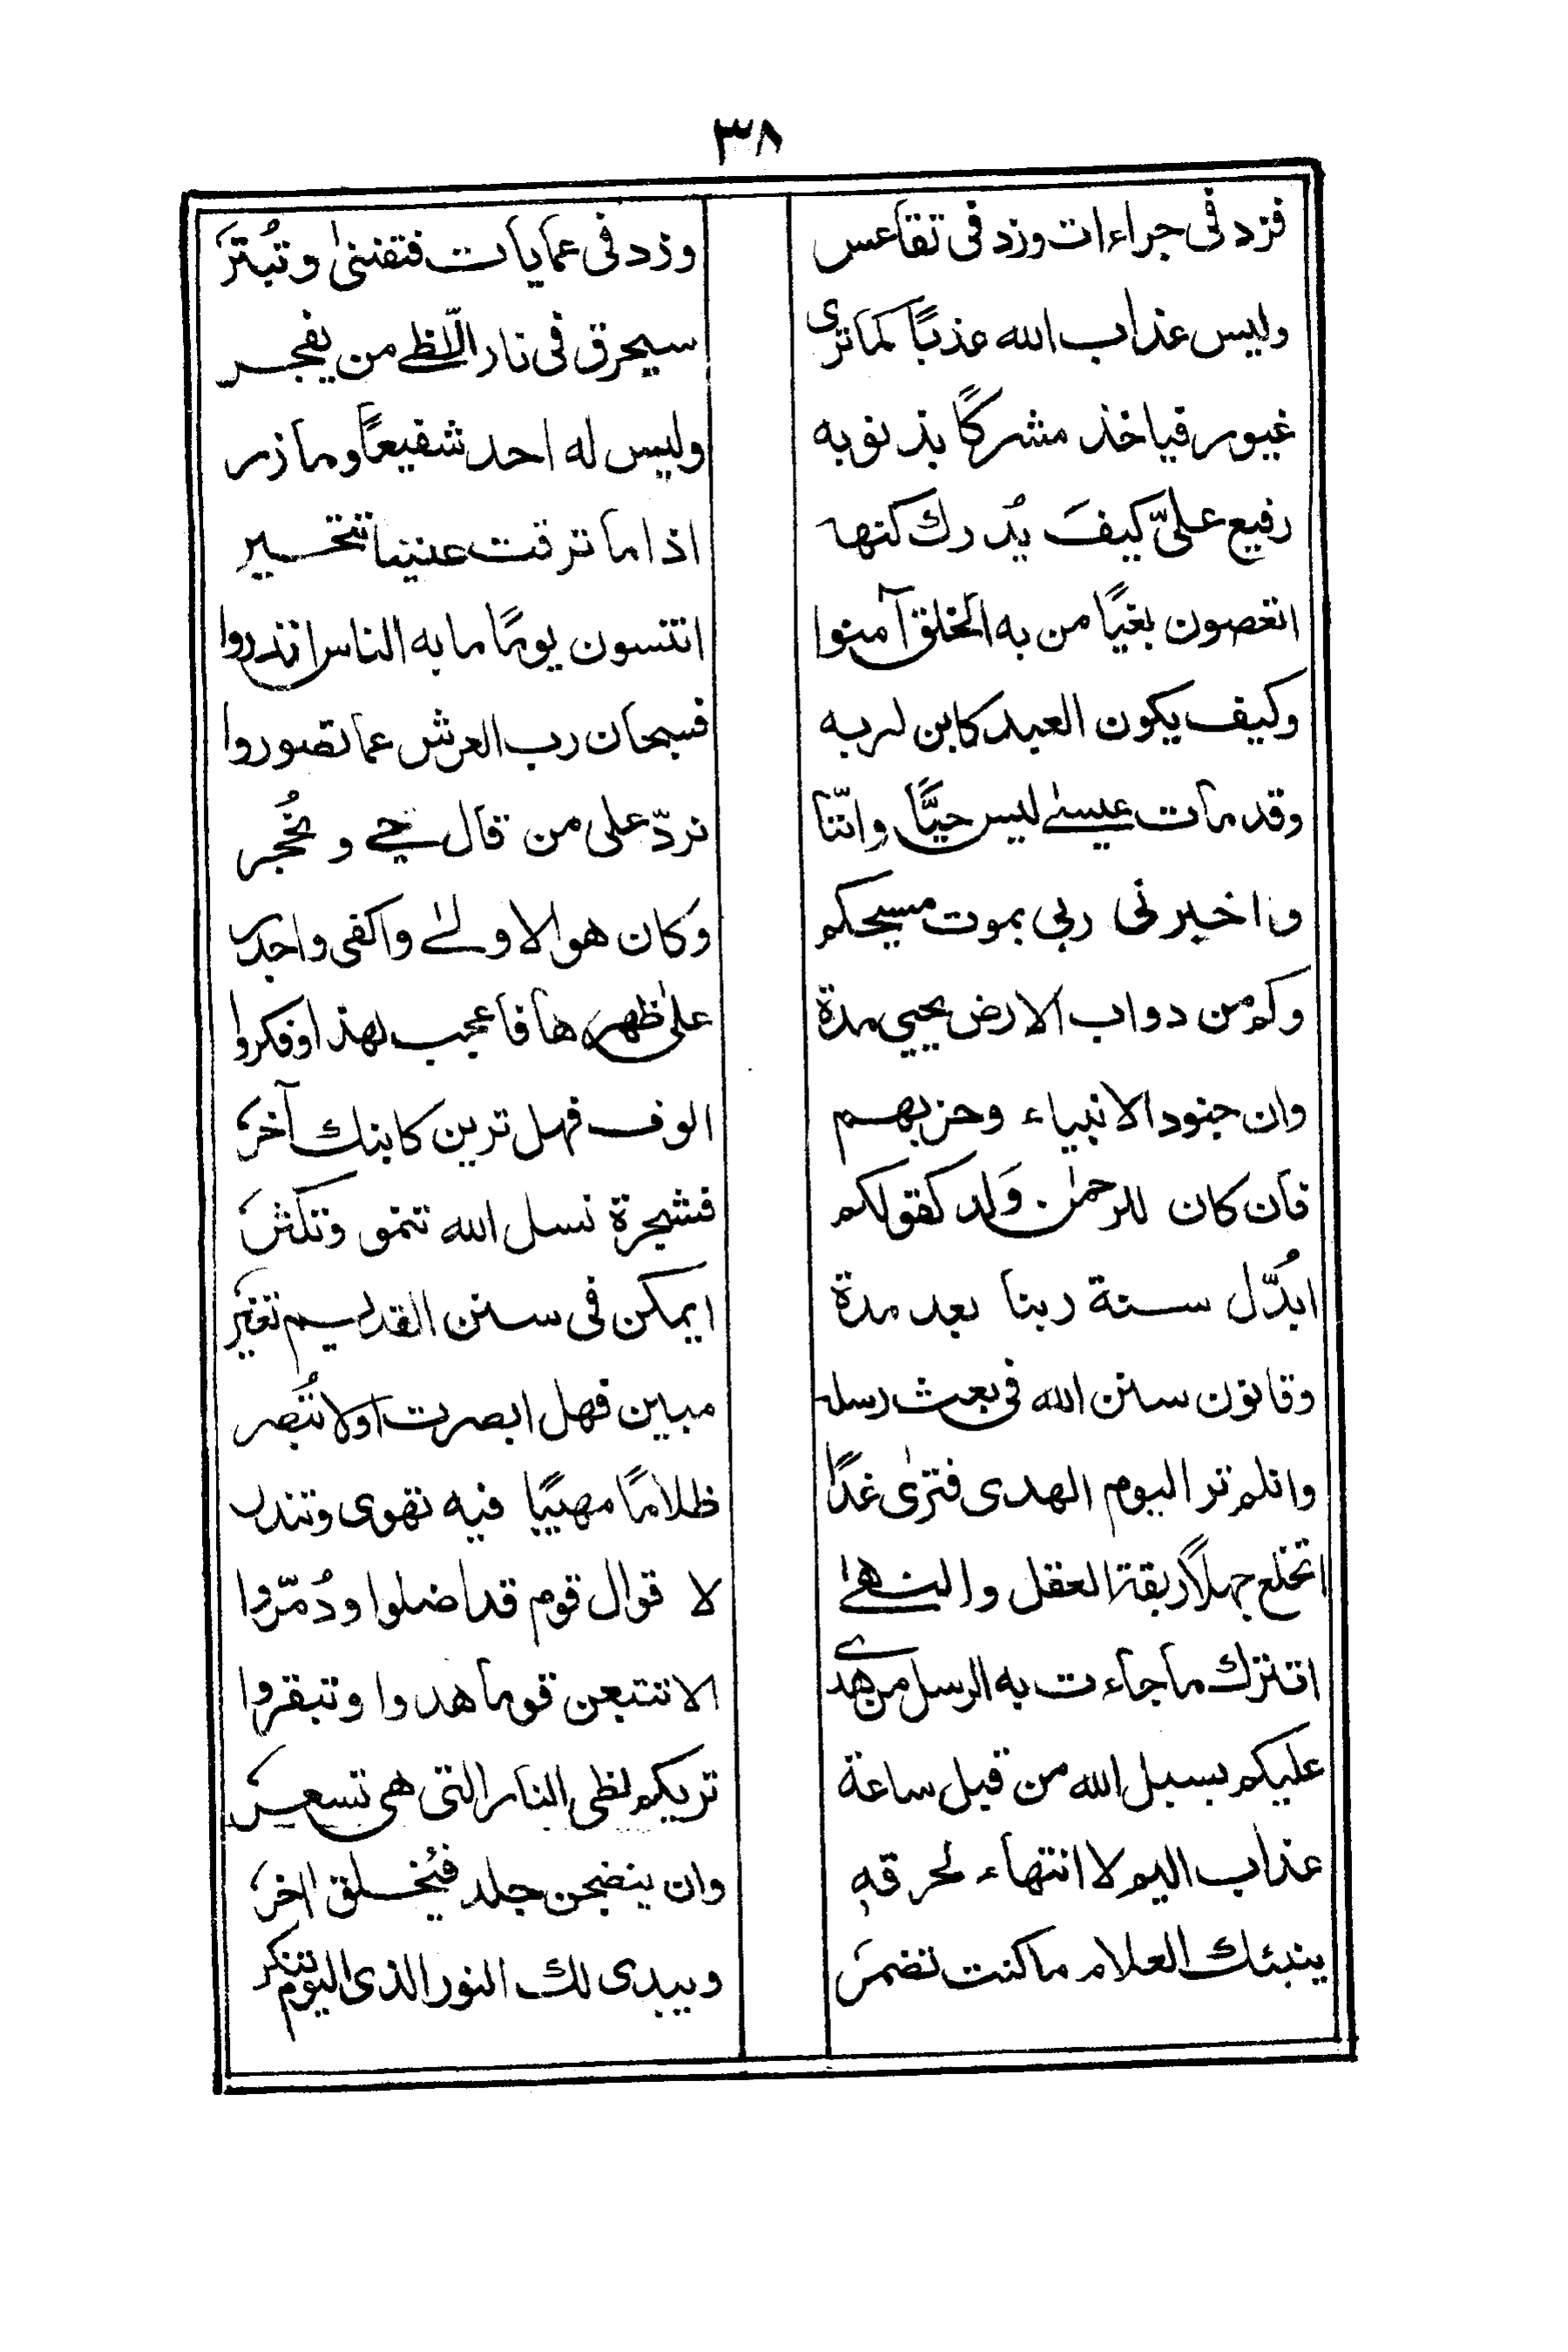 ٣٨
فزد فی جراءات وزد فی تقاعس    وزد فی عمایات فتفنیٰ وتُبتَرَ
ولیس عذاب الله عذبًا کما ترٰی    سیحرق فی نار اللّظی من یفجر
غیور فیاخذ مشرکًا بذنوبه    ولیس له احد شفیعًا ومأزر
رفیع علیّ کیفَ یُدرك کنهه    اذا ما ترقت عنینا تتحسیر
اتعصون بغیًا من به الخلق آمنوا    اتنسون یومًا ما به الناس انذروا
وکیف یکون العبد کابن لربه    فسبحان رب العرش عما تصوروا
وقد مات عیسیٰ لیس حیًّا وانّنا    نردّ علی من قال حی و نُحجر
واخبرنی ربی بموت مسیحکم    وکان هو الاولیٰ واکفی واجدر
وکم من دواب الارض یحیی مدة    علیٰ ظهرها فاعجب لهذا وفکروا
وان جنود الانبیاء وحزبهم    الوف فهل ترین کابنك آخرَ
فان کان للرحمٰن وَلد کقولکم    فشجرة نسل الله تنمو وتکثرَ
ابُدّل سنة ربنا بعد مدة    ایمکن فی سنن القدیم تغیر
وقانون سنن الله فی بعث رسله    مبین فهل ابصرت اولا تُبصر
وانلم تر الیوم الهدی فتریٰ غدًا    ظلامًا مهیبًا فیه تهوی وتندر
اتخلع جهلًا ربقة العقل والنهیٰ    لاقوال قوم قد اضلوا ودُمّروا
اتترك ما جاءت به الرسل من هدی    الا تتبعن قوما هدوا وتبقروا
علیکم بسبل الله من قبل ساعة    تریکم لظی النار التی هی تسعرَ
عذاب الیم لا انتهاء لحرقه    وان ینضجن جلد فیُخلق اٰخرَ
ینبئك العلام ما کنت تضمرَ    ویبدی لك النور الذی الیوم تنکر